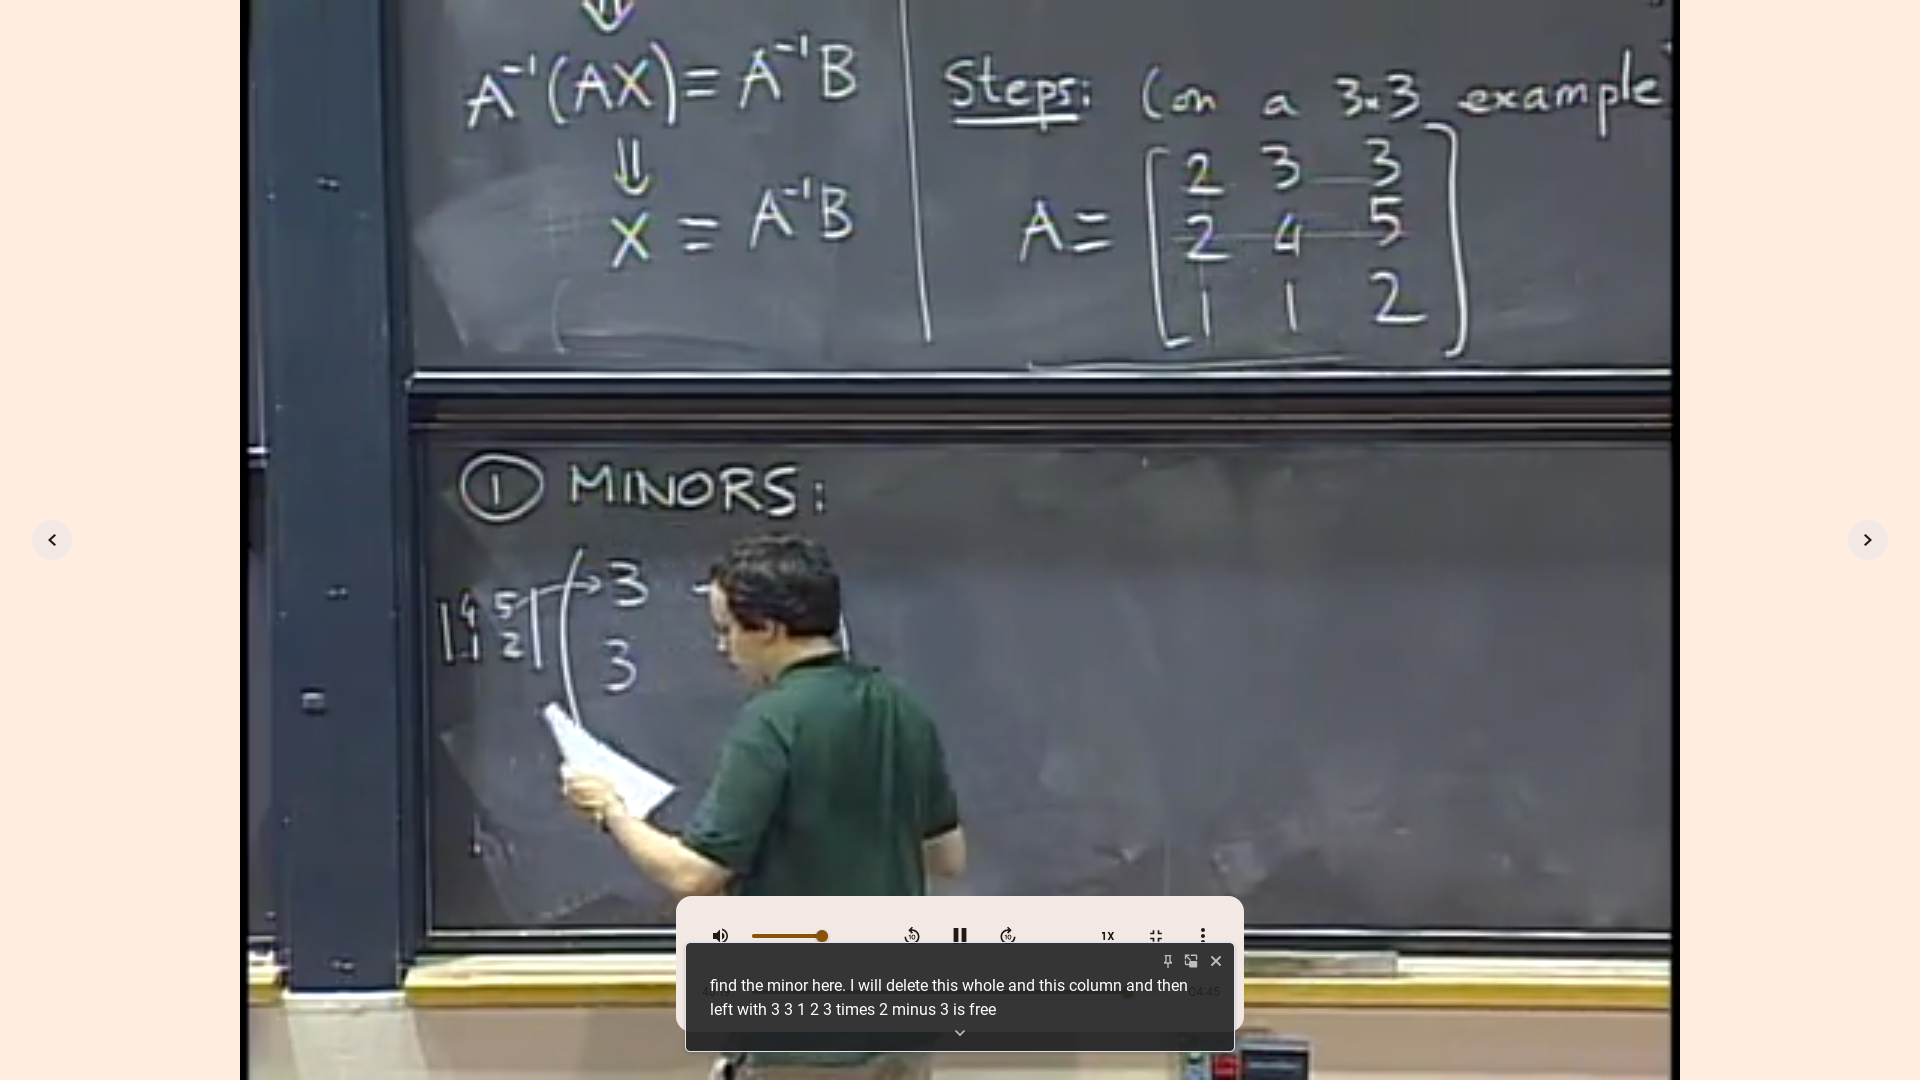 A⁻¹(AX) = A⁻¹B
⇓
X = A⁻¹B
Steps: (on a 3×3 example
A = [2 3 3
2 4 5
1 1 2]
① MINORS:
|4 5
1 2|
( 3 -
3
1X
04:45
find the minor here. I will delete this whole and this column and then
left with 3 3 1 2 3 times 2 minus 3 is free